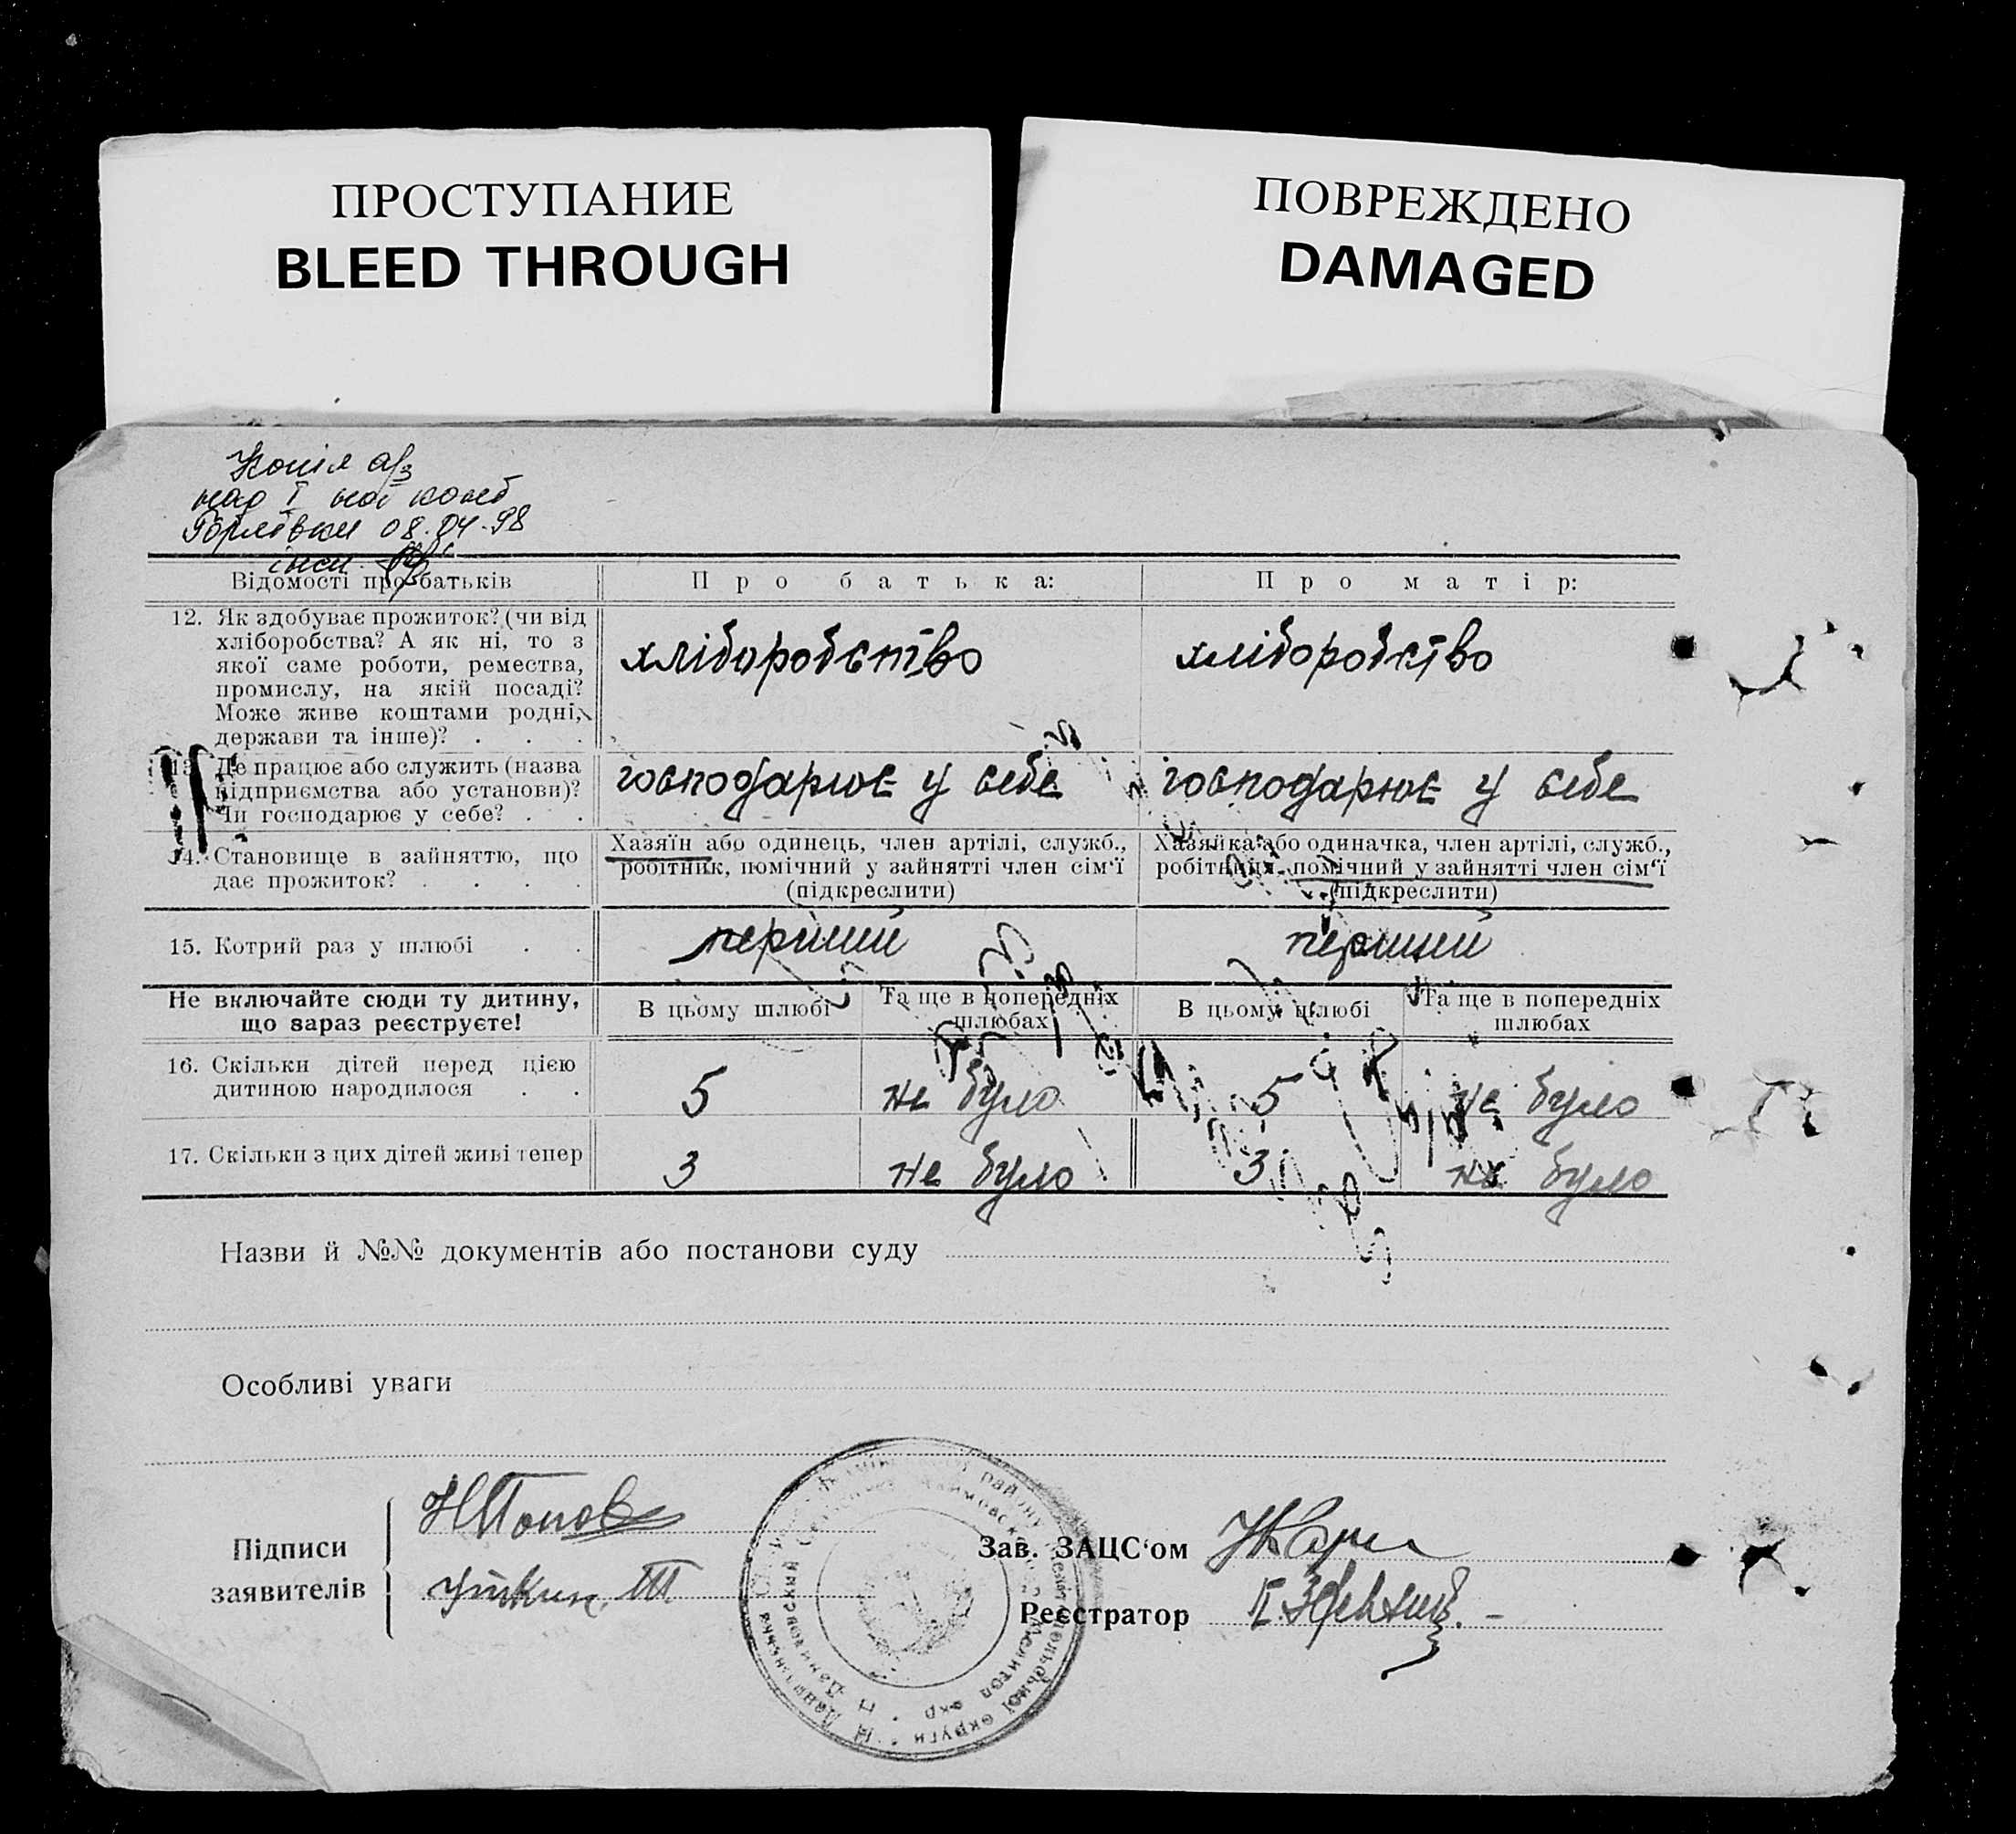 ПРОСТУПАНИЕ
BLEED THROUGH
ПОВРЕЖДЕНО
DAMAGED
Копія а/з
над І
Горлівки 08.04.98
Відомості про батьків
Про батька:
Про матір:
12. Як здобуває прожиток? (чи від
хліборобства? А як ні, то з
якої саме роботи, ремества,
промислу, на якій посаді?
Може живе коштами родні,
держави та інше)? . . .
хліборобство
хліборобство
13. Де працює або служить (назва
підприємства або установи)?
Чи господарює у себе? . .
господарює у себе
господарює у себе
14. Становище в зайняттю, що
дає прожиток? . . . .
Хазяїн або одинець, член артілі, служб.,
робітник, помічний у зайнятті член сім‘ї
(підкреслити)
Хазяйка або одиначка, член артілі, служб.,
робітниця, помічний у зайнятті член сім‘ї
(підкреслити)
15. Котрий раз у шлюбі . .
перший
перший
Не включайте сюди ту дитину,
що зараз реєструєте!
В цьому шлюбі
Та ще в попередніх
шлюбах
В цьому шлюбі
Та ще в попередніх
шлюбах
16. Скільки дітей перед цією
дитиною народилося . .
5
не було
5
не було
17. Скільки з цих дітей живі тепер
3
не було
3
не було
Назви й №№ документів або постанови суду
Особливі уваги
Підписи
заявителів
НПопов
Зав. ЗАЦС‘ом
Реєстратор